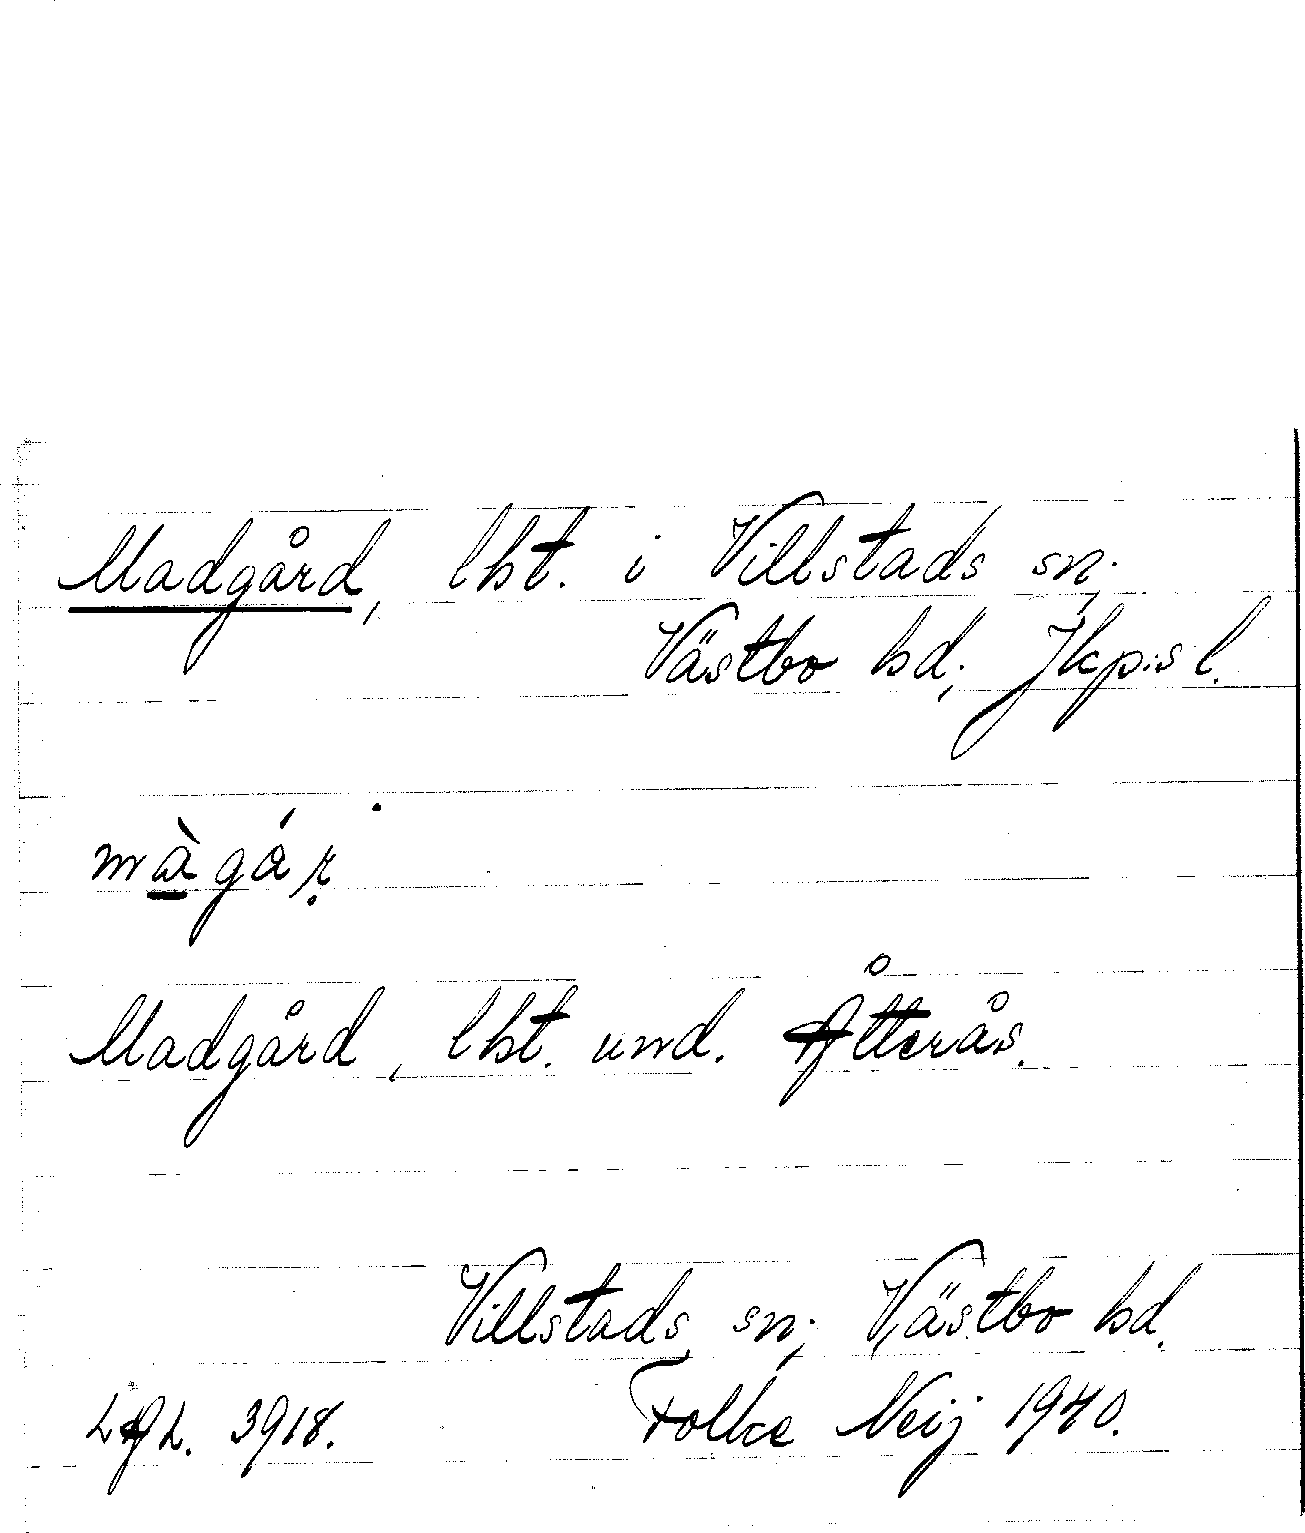 Madgård, lht. i Villstads sn.
Västbo hd; Jkp:s l.
màgá̊ṛ
Madgård, lht. und. Åtterås.
Villstads sn; Västbo hd.
3918. Folke Neij 1940.